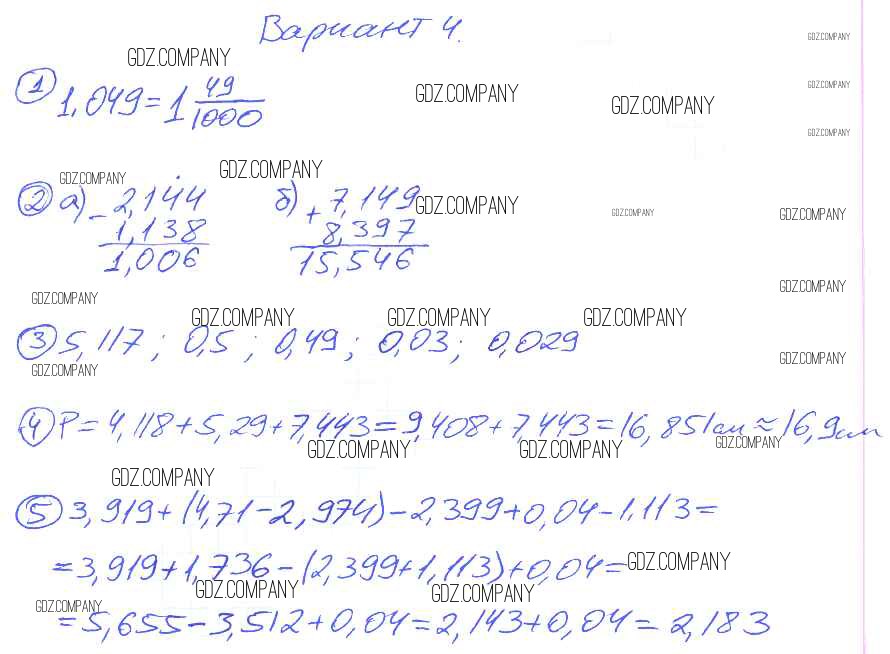 Вариант 4.
GDZ.COMPANY
GDZ.COMPANY
GDZ.COMPANY
GDZ.COMPANY
GDZ.COMPANY
GDZ.COMPANY
① 1,049 = 1 49/1000
GDZ.COMPANY
GDZ.COMPANY
② а) - 2,144 б) + 7,149
1,138 8,397
1,006 15,546
GDZ.COMPANY
GDZ.COMPANY
GDZ.COMPANY
GDZ.COMPANY
GDZ.COMPANY
GDZ.COMPANY
GDZ.COMPANY
GDZ.COMPANY
③ 5,117; 0,5; 0,49; 0,03; 0,029
GDZ.COMPANY
GDZ.COMPANY
④ P = 4,118 + 5,29 + 7,443 = 9,408 + 7,443 = 16,851см ≈ 16,9см
GDZ.COMPANY
GDZ.COMPANY
GDZ.COMPANY
GDZ.COMPANY
⑤ 3,919 + (4,71 - 2,974) - 2,399 + 0,04 - 1,113 =
= 3,919 + 1,736 - (2,399 + 1,113) + 0,04 =
GDZ.COMPANY
GDZ.COMPANY
GDZ.COMPANY
GDZ.COMPANY
= 5,655 - 3,512 + 0,04 = 2,143 + 0,04 = 2,183